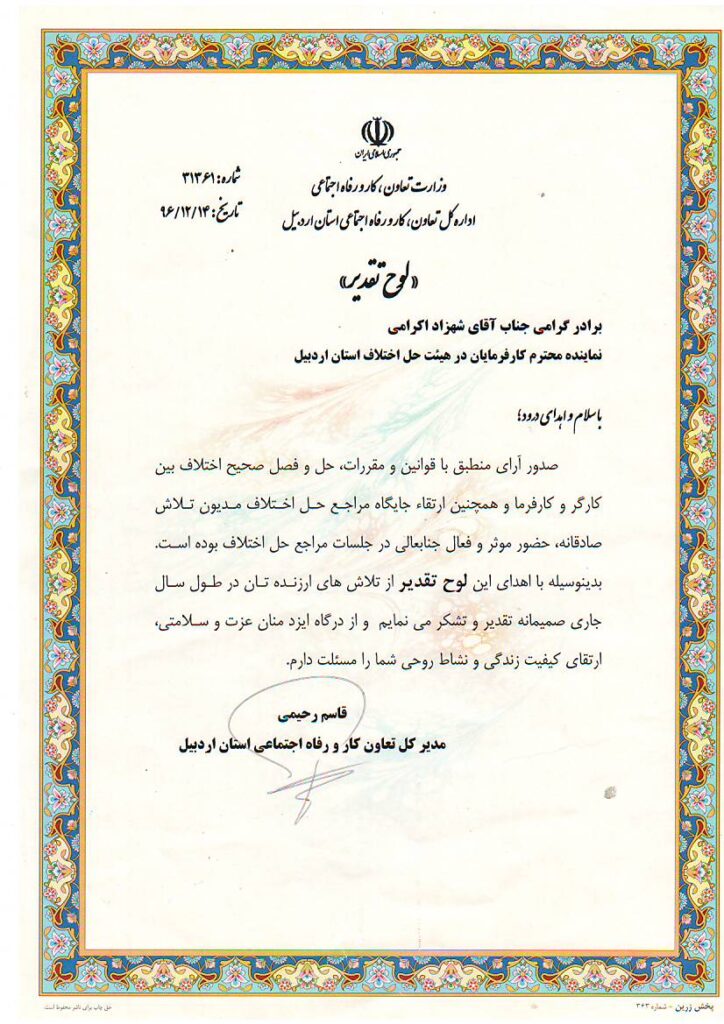 جمهوری اسلامی ایران
وزارت تعاون، کار و رفاه اجتماعی
اداره کل تعاون، کار و رفاه اجتماعی استان اردبیل
شماره: ۳۱۳۶۱
تاریخ: ۹۶/۱۲/۱۴
«لوح تقدیر»
برادر گرامی جناب آقای شهزاد اکرامی
نماینده محترم کارفرمایان در هیئت حل اختلاف استان اردبیل
باسلام و اهدای درود؛
صدور آرای منطبق با قوانین و مقررات، حل و فصل صحیح اختلاف بین
کارگر و کارفرما و همچنین ارتقاء جایگاه مراجع حل اختلاف مدیون تلاش
صادقانه، حضور موثر و فعال جنابعالی در جلسات مراجع حل اختلاف بوده است.
بدینوسیله با اهدای این لوح تقدیر از تلاش های ارزنده تان در طول سال
جاری صمیمانه تقدیر و تشکر می نمایم و از درگاه ایزد منان عزت و سلامتی،
ارتقای کیفیت زندگی و نشاط روحی شما را مسئلت دارم.
قاسم رحیمی
مدیر کل تعاون کار و رفاه اجتماعی استان اردبیل
پخش زرین - شماره ۳۶۳
حق چاپ برای ناشر محفوظ است.